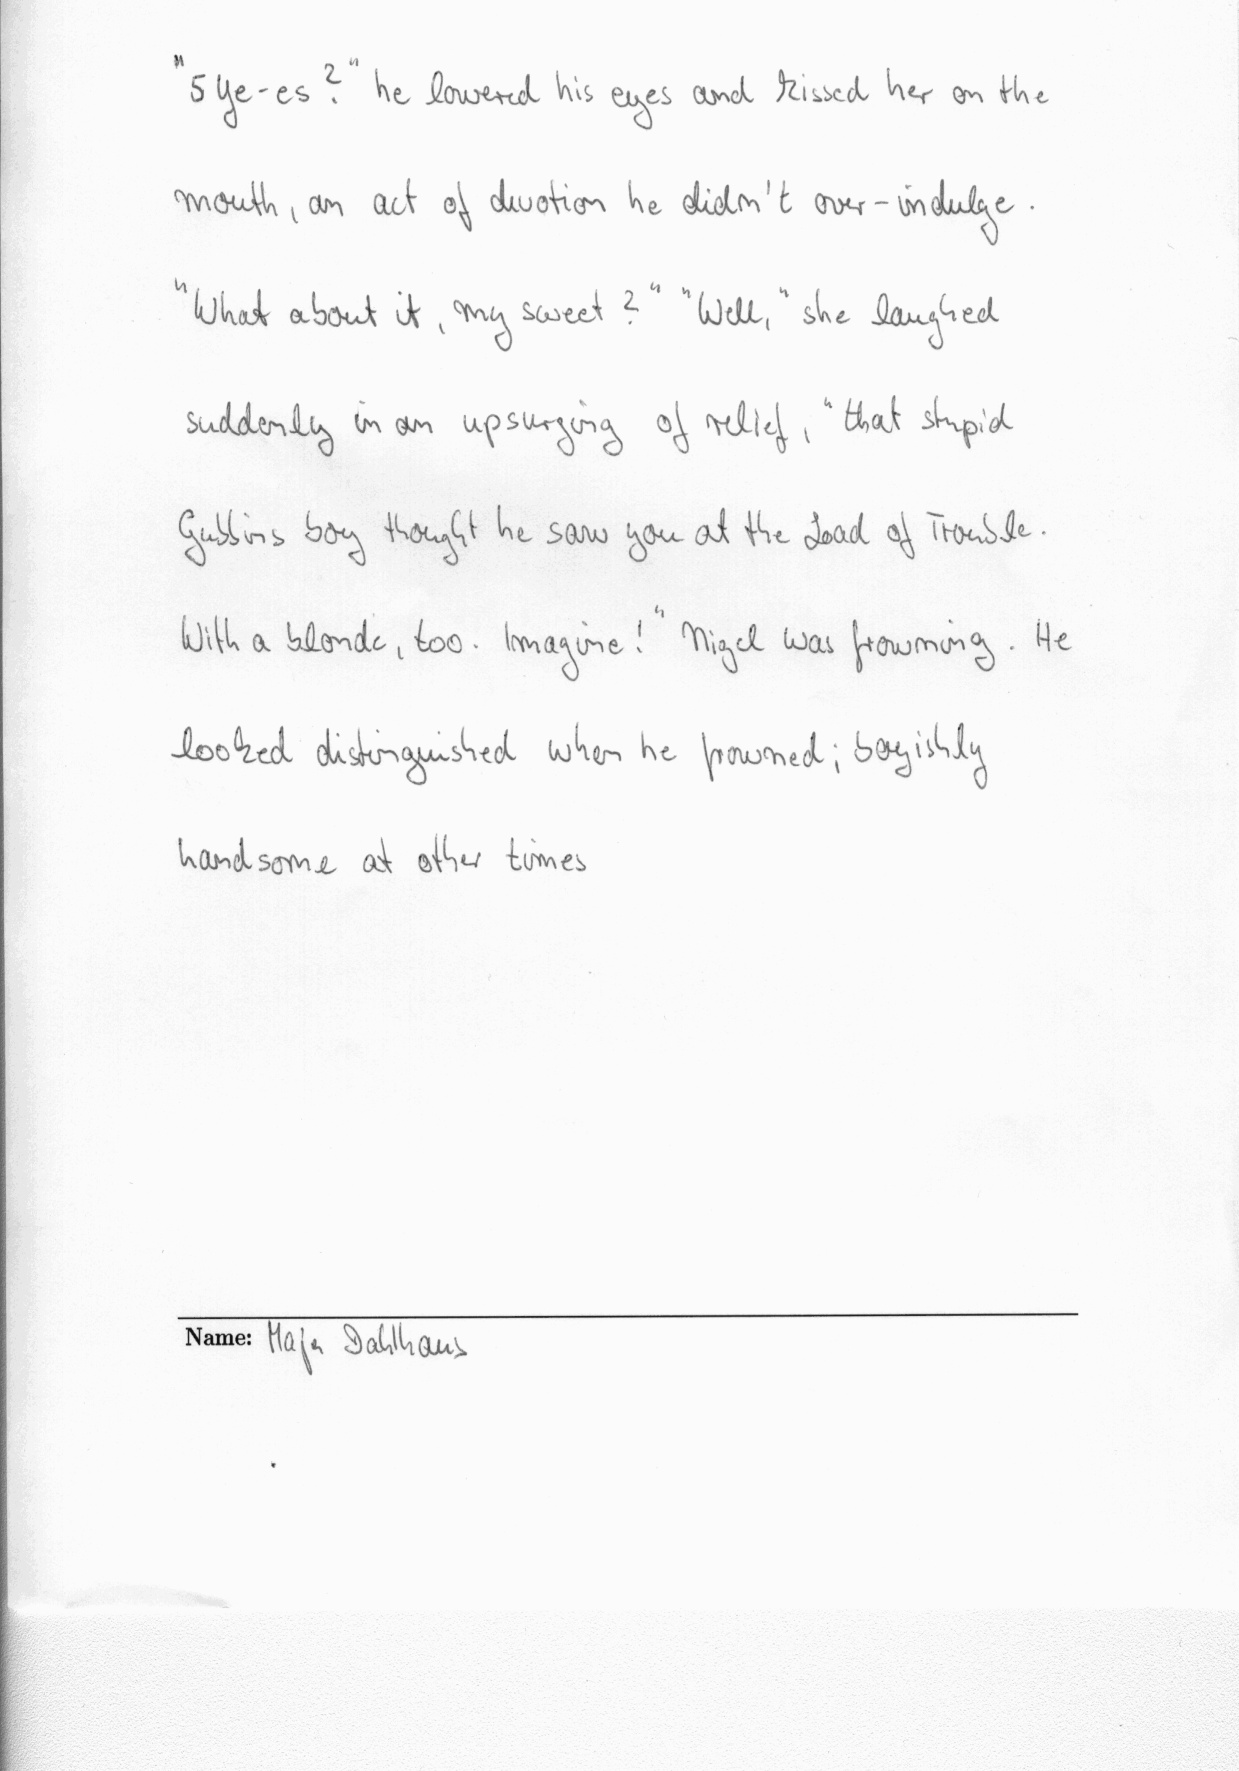 "5 Ye-es?" he lowered his eyes and kissed her on the
mouth, an act of devotion he didn't over-indulge.
"What about it, my sweet?" "Well," she laughed
suddenly in an upsurging of relief, "that stupid
Gubbins boy thought he saw you at the Load of Trouble.
With a blonde, too. Imagine!" Nigel was frowning. He
looked distinguished when he frowned; boyishly
handsome at other times
Name: Maja Dahlhaus